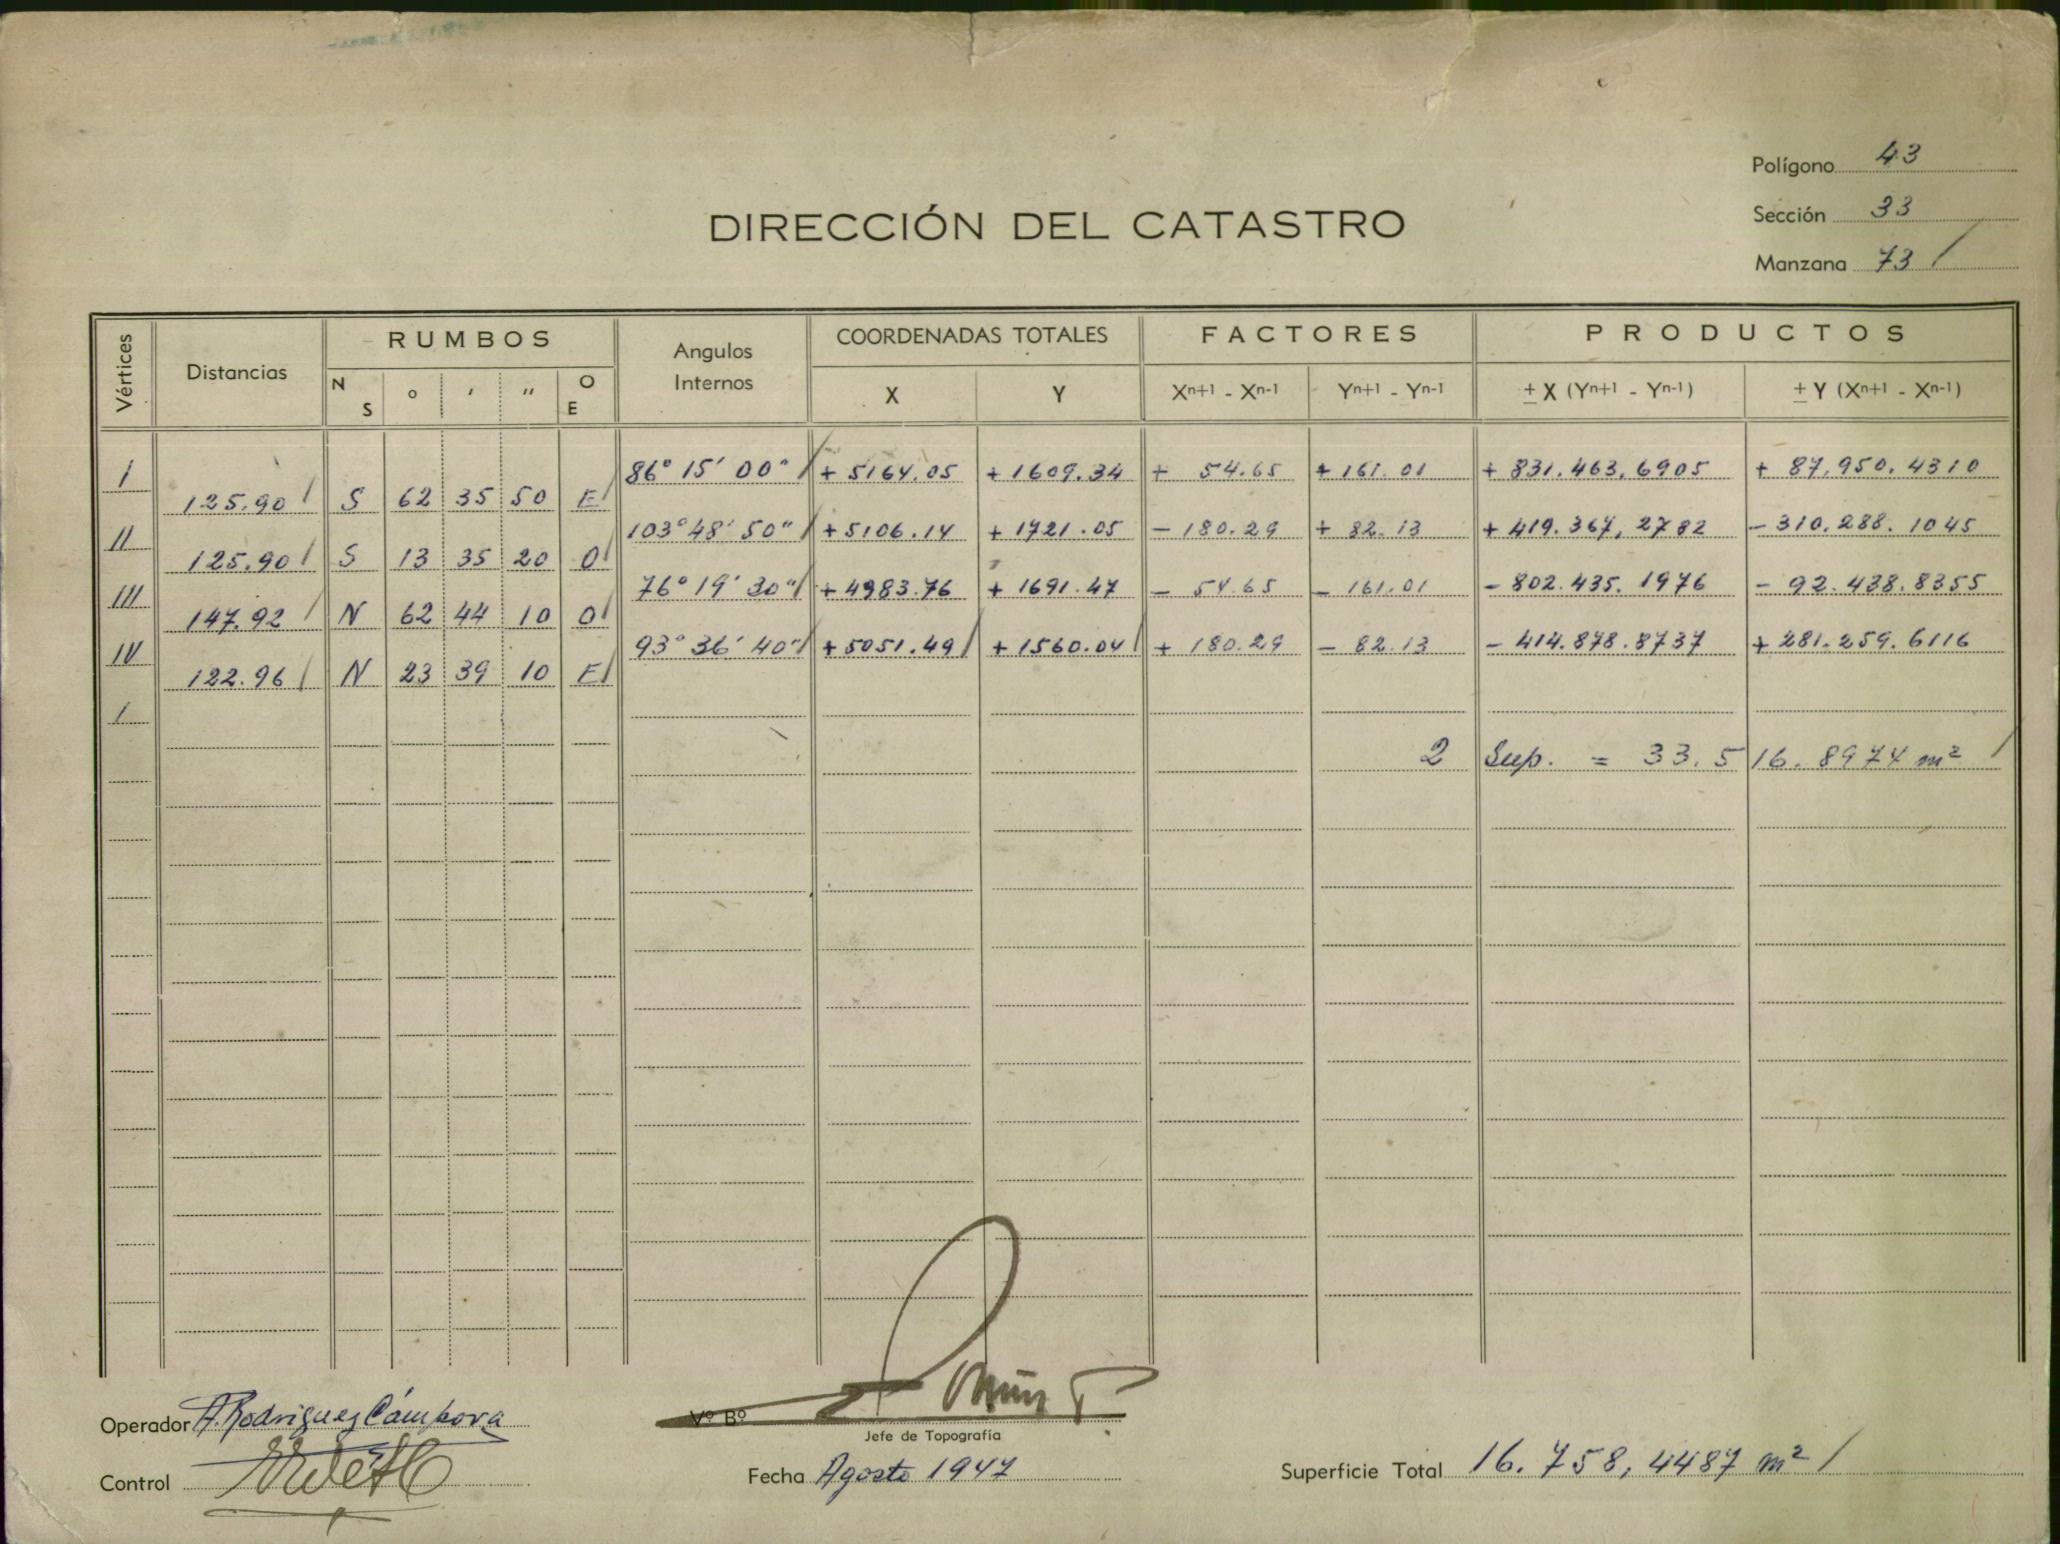 Polígono 43
DIRECCIÓN DEL CATASTRO
Sección 33
Manzana 73 /
Vértices Distancias RUMBOS Angulos Internos COORDENADAS TOTALES FACTORES PRODUCTOS
N S ° ′ ″ O E X Y Xn+1 - Xn-1 Yn+1 - Yn-1 ± X (Yn+1 - Yn-1) ± Y (Xn+1 - Xn-1)
I 86° 15′ 00″ + 5164.05 + 1609.34 + 54.65 + 161.01 + 831.463,6905 + 87,950.4310
125.90 S 62 35 50 E
II 103° 48′ 50″ + 5106.14 + 1721.05 - 180.29 + 82.13 + 419.367,2782 - 310.288.1045
125.90 S 13 35 20 O
III 76° 19′ 30″ + 4983.76 + 1691.47 - 54.65 - 161.01 - 802.435.1976 - 92.438.8355
147.92 N 62 44 10 O
IV 93° 36′ 40″ + 5051.49 + 1560.04 + 180.29 - 82.13 - 414.878.8737 + 281.259.6116
122.96 N 23 39 10 E
I
2 Sup. = 33.516.8974 m² /
Operador A. Rodriguez Cámpora
Vº Bº
Jefe de Topografía
Control
Fecha Agosto 1947
Superficie Total 16.758,4487 m² /